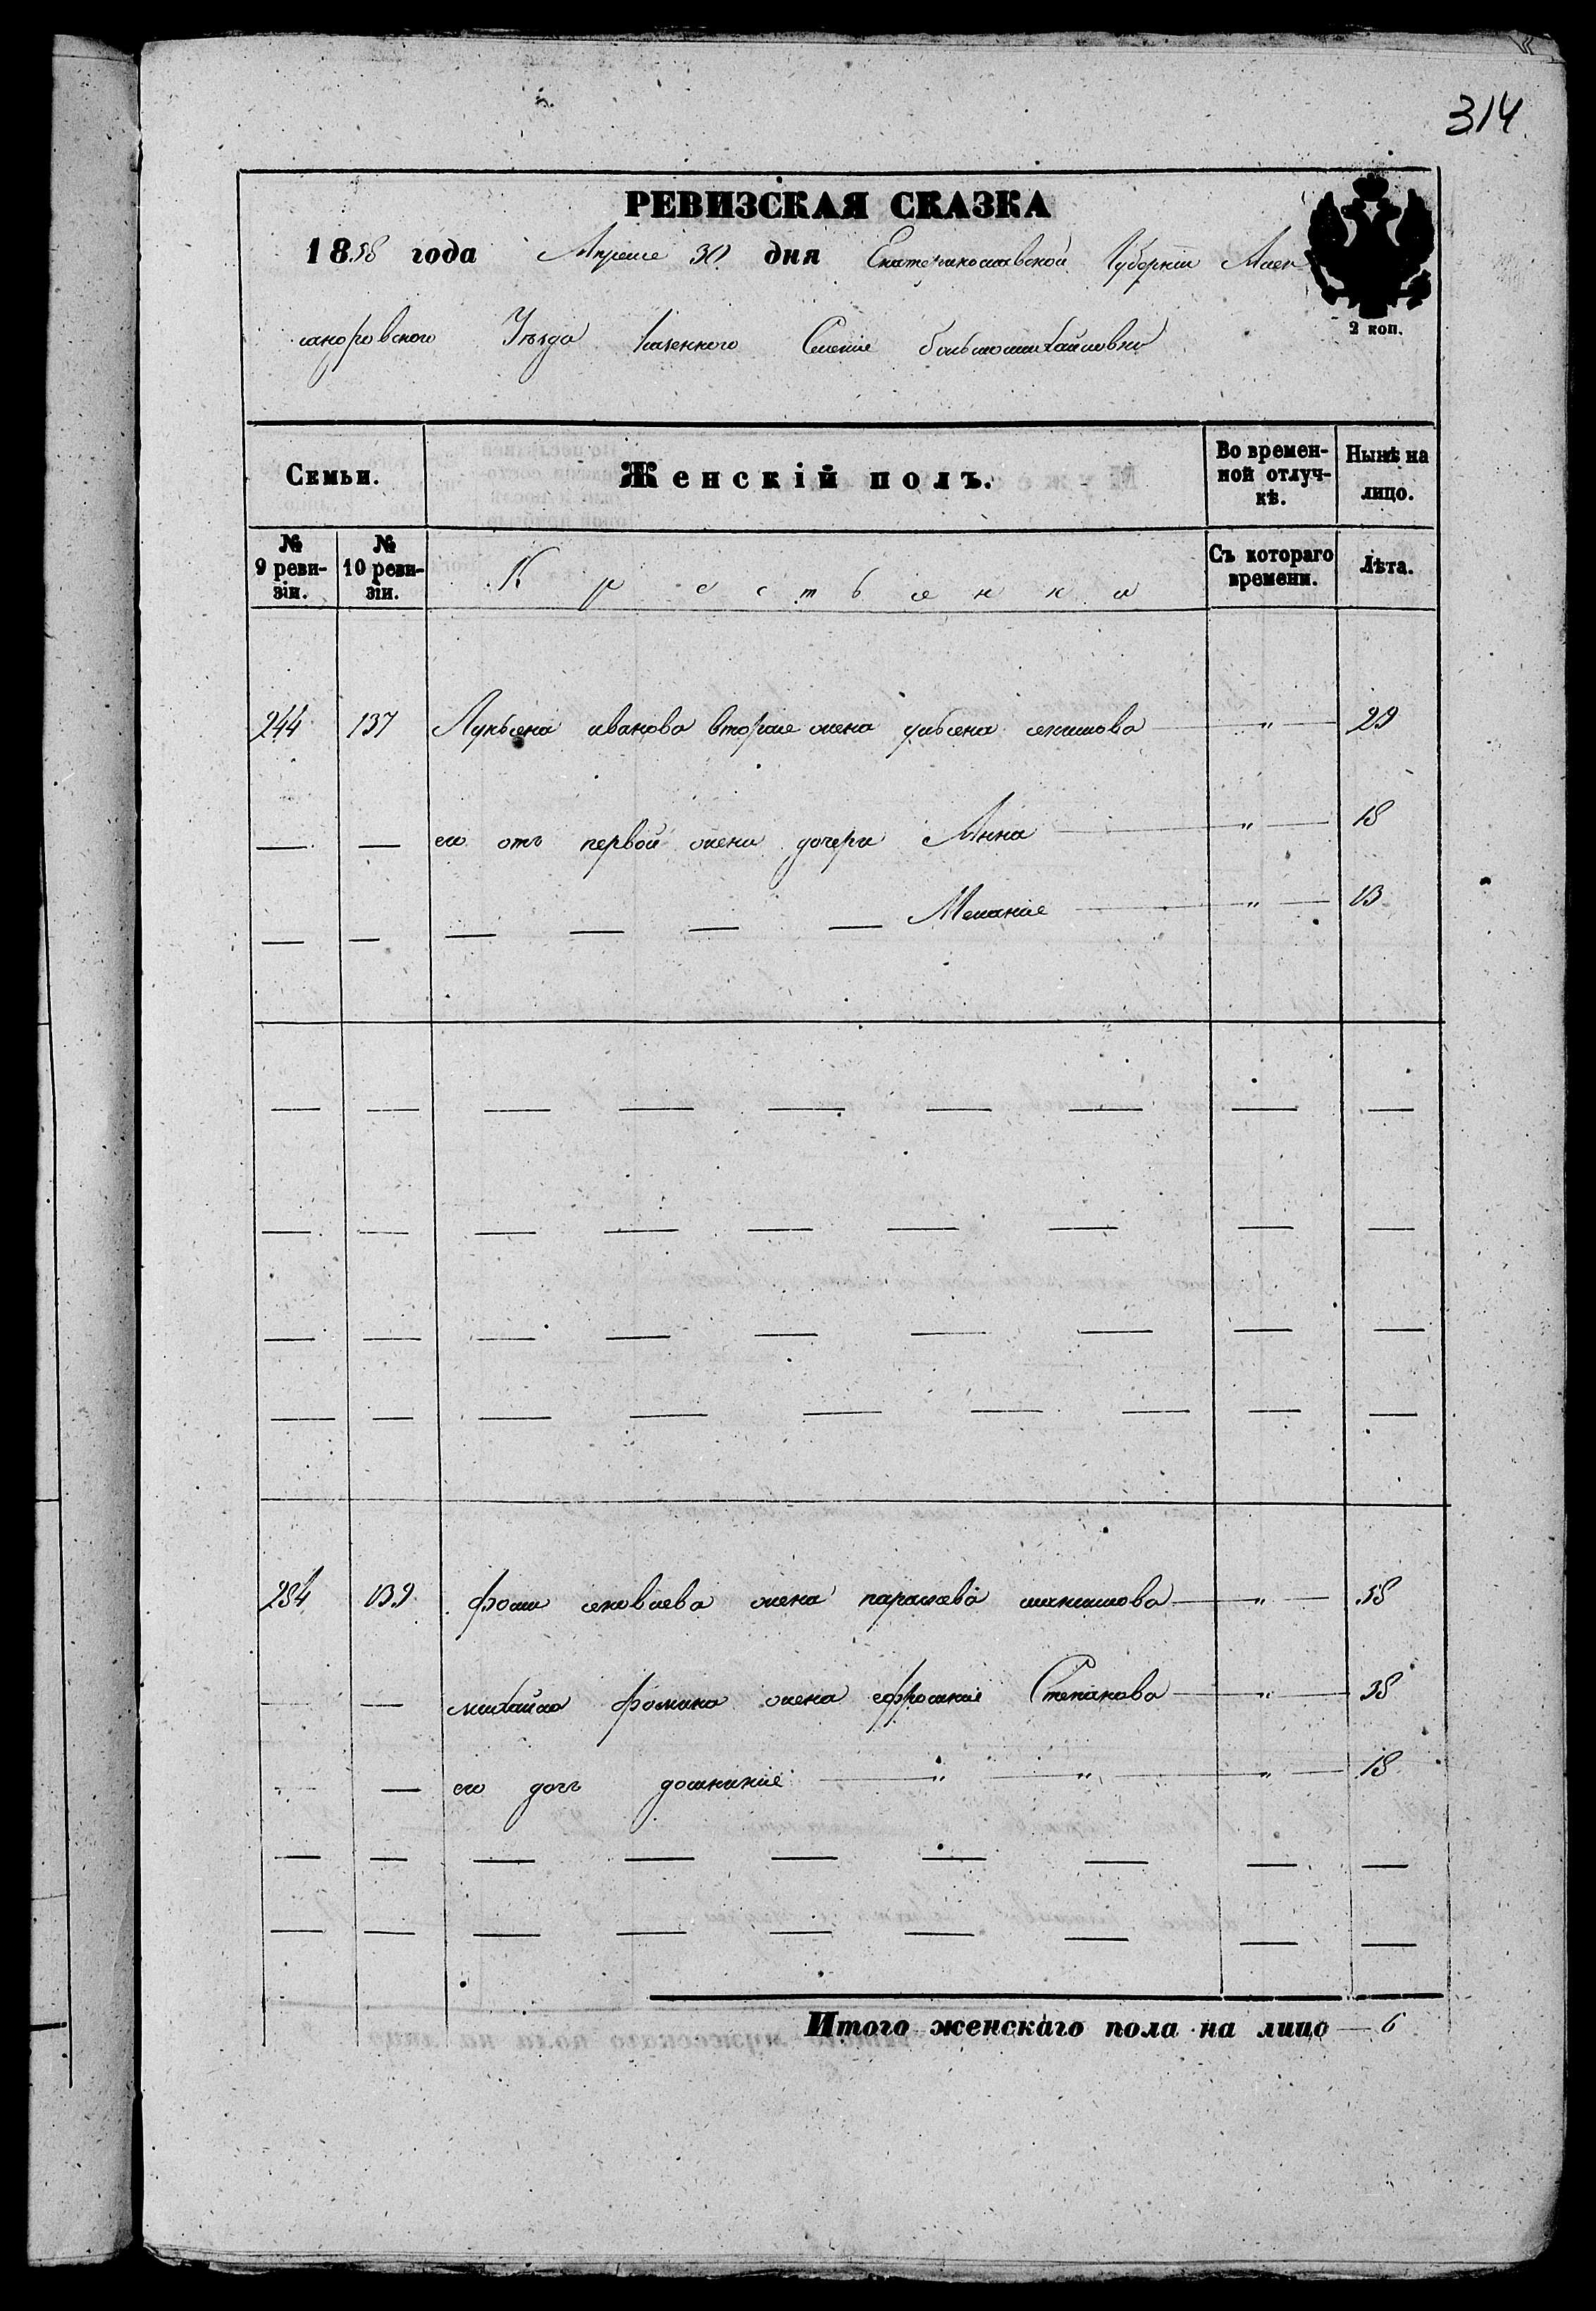 314
РЕВИЗСКАЯ СКАЗКА
1858 года Апреля 30 дня Екатеринославской Губернии Алек
2 коп.
сандровского Уѣзда Казенного Селения большомихайловки
Семьи. Женскій полъ. Во времен- Нынѣ на
ной отлуч- лицо.
кѣ.
№ № Съ котораго Лѣта.
9 реви- 10 реви- Крестьянки времени.
зіи. зіи.
244 137 Лукьяна иванова вторая жена ульяна " 29
— — его отъ первой жены дочери Анна " 18
— — — — — — Мелания " 13
— — — — — — — — —
— — — — — — — — —
— — — — — — — — —
— — — — — — — — —
284 139 фомы яковлева жена парасковия " 58
— — михайла фомина жена ефросиния Степанова " 38
— — его дочь домникия " " " 18
— — — — — — — — —
— — — — — — — — —
Итого женскаго пола на лицо — 6